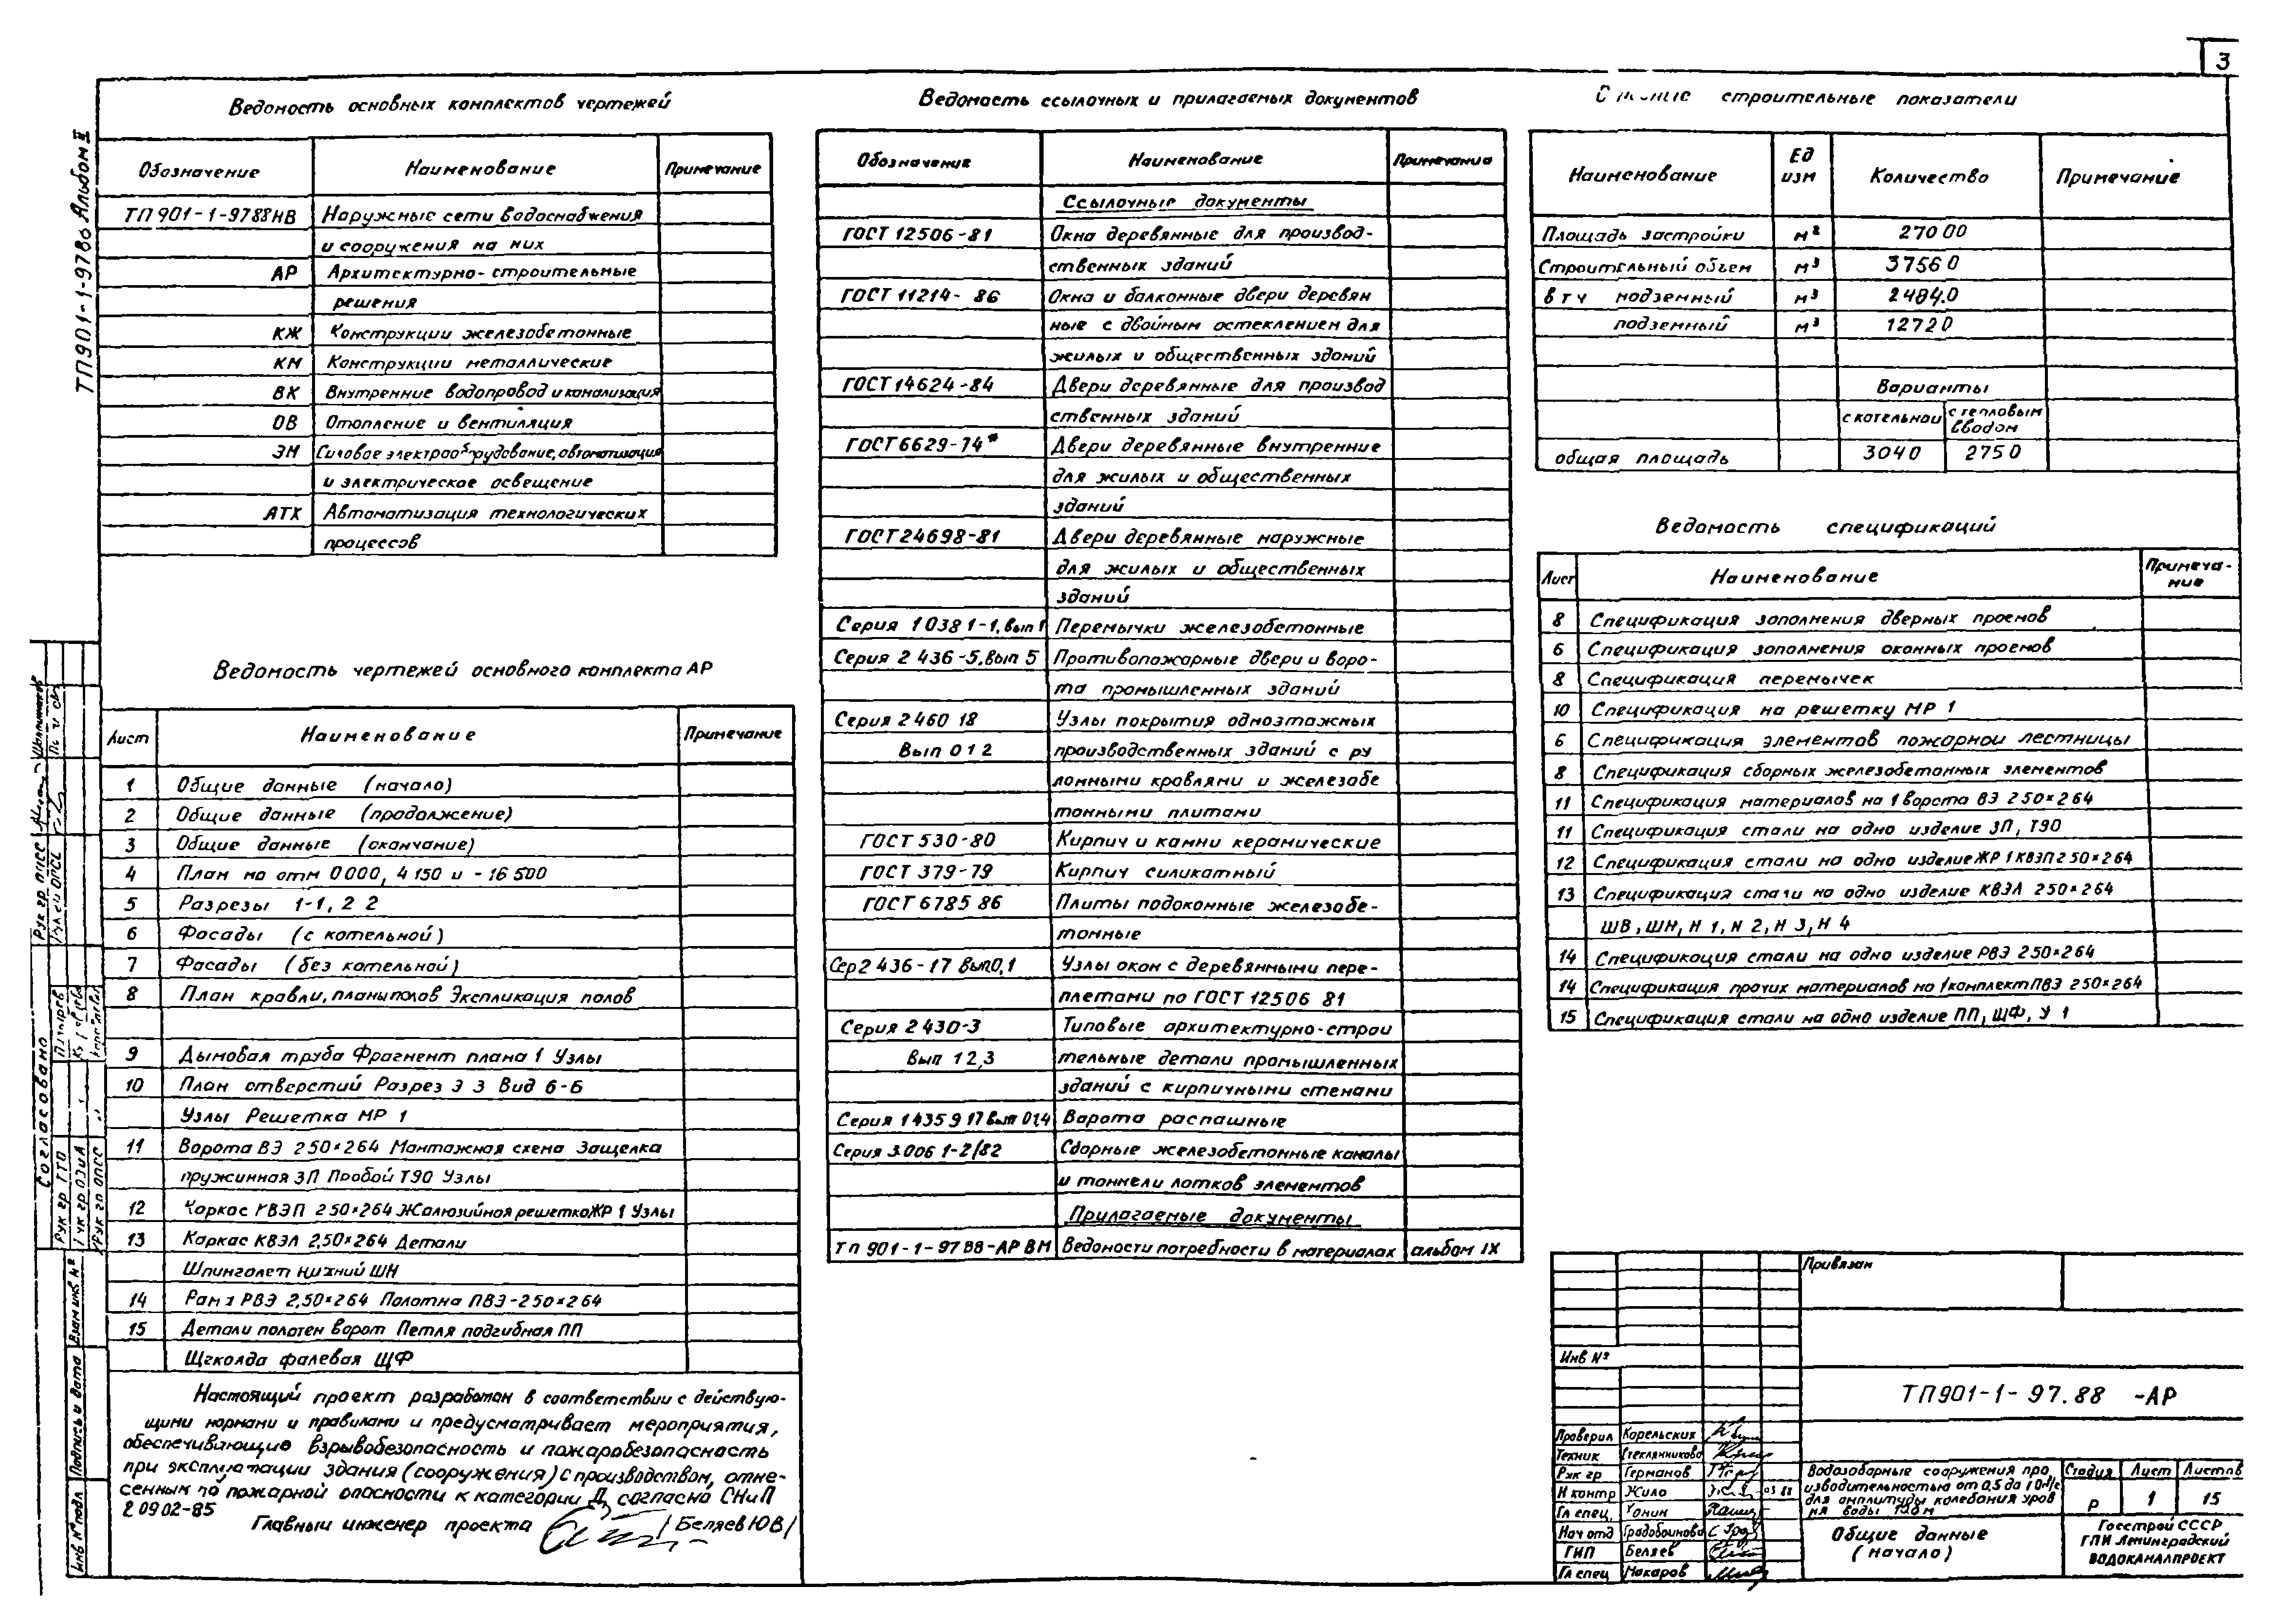 3
ТП901-1-9788 Альбом II
Ведомость основных комплектов чертежей
Обозначение Наименование Примечание
ТП901-1-9788НВ Наружные сети водоснабжения
и сооружения на них
АР Архитектурно-строительные
решения
КЖ Конструкции железобетонные
КМ Конструкции металлические
ВК Внутренние водопровод и канализация
ОВ Отопление и вентиляция
ЭМ Силовое электрооборудование, автоматизация
и электрическое освещение
АТХ Автоматизация технологических
процессов
Ведомость чертежей основного комплекта АР
Лист Наименование Примечание
1 Общие данные (начало)
2 Общие данные (продолжение)
3 Общие данные (окончание)
4 План на отм 0000, 4 150 и -16 500
5 Разрезы 1-1, 2 2
6 Фасады (с котельной)
7 Фасады (без котельной)
8 План кровли, планы полов Экспликация полов
9 Дымовая труба Фрагмент плана 1 Узлы
10 План отверстий Разрез 3 3 Вид 6-6
Узлы Решетка МР 1
11 Ворота ВЭ 250×264 Монтажная схема Защелка
пружинная ЗП Пробой Т90 Узлы
12 Каркас КВЭП 250×264 Жалюзийная решетка ЖР 1 Узлы
13 Каркас КВЭЛ 2,50×264 Детали
Шпингалет нижний ШН
14 Рама РВЭ 2,50×264 Полотна ПВЭ-250×264
15 Детали полотен ворот Петля подгибная ПП
Щеколда фалевая ЩФ
Настоящий проект разработан в соответствии с действую-
щими нормами и правилами и предусматривает мероприятия,
обеспечивающие взрывобезопасность и пожаробезопасность
при эксплуатации здания (сооружения) с производством, отне-
сенным по пожарной опасности к категории Д, согласно СНиП
2 09 02-85
Главный инженер проекта /Беляев Ю В/
Ведомость ссылочных и прилагаемых документов
Обозначение Наименование Примечания
Ссылочные документы
ГОСТ 12506-81 Окна деревянные для производ-
ственных зданий
ГОСТ 11214- 86 Окна и балконные двери деревян
ные с двойным остеклением для
жилых и общественных зданий
ГОСТ 14624-84 Двери деревянные для производ
ственных зданий
ГОСТ 6629-74* Двери деревянные внутренние
для жилых и общественных
зданий
ГОСТ 24698-81 Двери деревянные наружные
для жилых и общественных
зданий
Серия 1 038 1-1, вып 1 Перемычки железобетонные
Серия 2 436-5, вып 5 Противопожарные двери и воро-
та промышленных зданий
Серия 2 460 18 Узлы покрытия одноэтажных
Вып 0 1 2 производственных зданий с ру
лонными кровлями и железобе
тонными плитами
ГОСТ 530-80 Кирпич и камни керамические
ГОСТ 379-79 Кирпич силикатный
ГОСТ 6785 86 Плиты подоконные железобе-
тонные
Сер 2 436-17 Вып 0,1 Узлы окон с деревянными пере-
плетами по ГОСТ 12506 81
Серия 2 430-3 Типовые архитектурно-строи
Вып 1 2,3 тельные детали промышленных
зданий с кирпичными стенами
Серия 1 435 9 17 вып 0,1,4 Ворота распашные
Серия 3.006 1-2/82 Сборные железобетонные каналы
и тоннели лотков элементов
Прилагаемые документы
ТП 901-1-97 88-АР ВМ Ведомости потребности в материалах альбом IX
строительные показатели
Наименование Ед изм Количество Примечание
Площадь застройки м² 270 00
Строительный объем м³ 3756 0
в т ч надземный м³ 2484.0
подземный м³ 1272 0
Варианты
с котельной с тепловым вводом
общая площадь 304 0 275 0
Ведомость спецификаций
Лист Наименование Примеча-
ние
8 Спецификация заполнения дверных проемов
6 Спецификация заполнения оконных проемов
8 Спецификация перемычек
10 Спецификация на решетку МР 1
6 Спецификация элементов пожарной лестницы
8 Спецификация сборных железобетонных элементов
11 Спецификация материалов на 1 ворота ВЭ 250×264
11 Спецификация стали на одно изделие ЗП, Т90
12 Спецификация стали на одно изделие ЖР 1 КВЭП 250×264
13 Спецификация стали на одно изделие КВЭЛ 250×264
ШВ, ШН, Н 1, Н 2, Н 3, Н 4
14 Спецификация стали на одно изделие РВЭ 250×264
14 Спецификация прочих материалов на 1 комплект ПВЭ 250×264
15 Спецификация стали на одно изделие ПП, ЩФ, У 1
Привязан
Инв №
ТП901-1-97.88 -АР
Проверил Карельских
Техник Стеклянникова
Рук гр Германов
Н контр Жило 03 88
Гл спец. Тонин
Нач отд Градобоинова
ГИП Беляев
Гл спец Макаров
Водозаборные сооружения про
изводительностью от 0,5 до 1 0 м³/с
для амплитуды колебания уров
ня воды
Стадия Лист Листов
Р 1 15
Общие данные
(начало)
Госстрой СССР
ГПИ Ленинградский
ВОДОКАНАЛПРОЕКТ
Согласовано
Рук гр ПТСС
Рук гр ТТП
Рук гр ОЭиА
Рук гр ОПСС
Взам инв №
Подпись и дата
Инв № подл